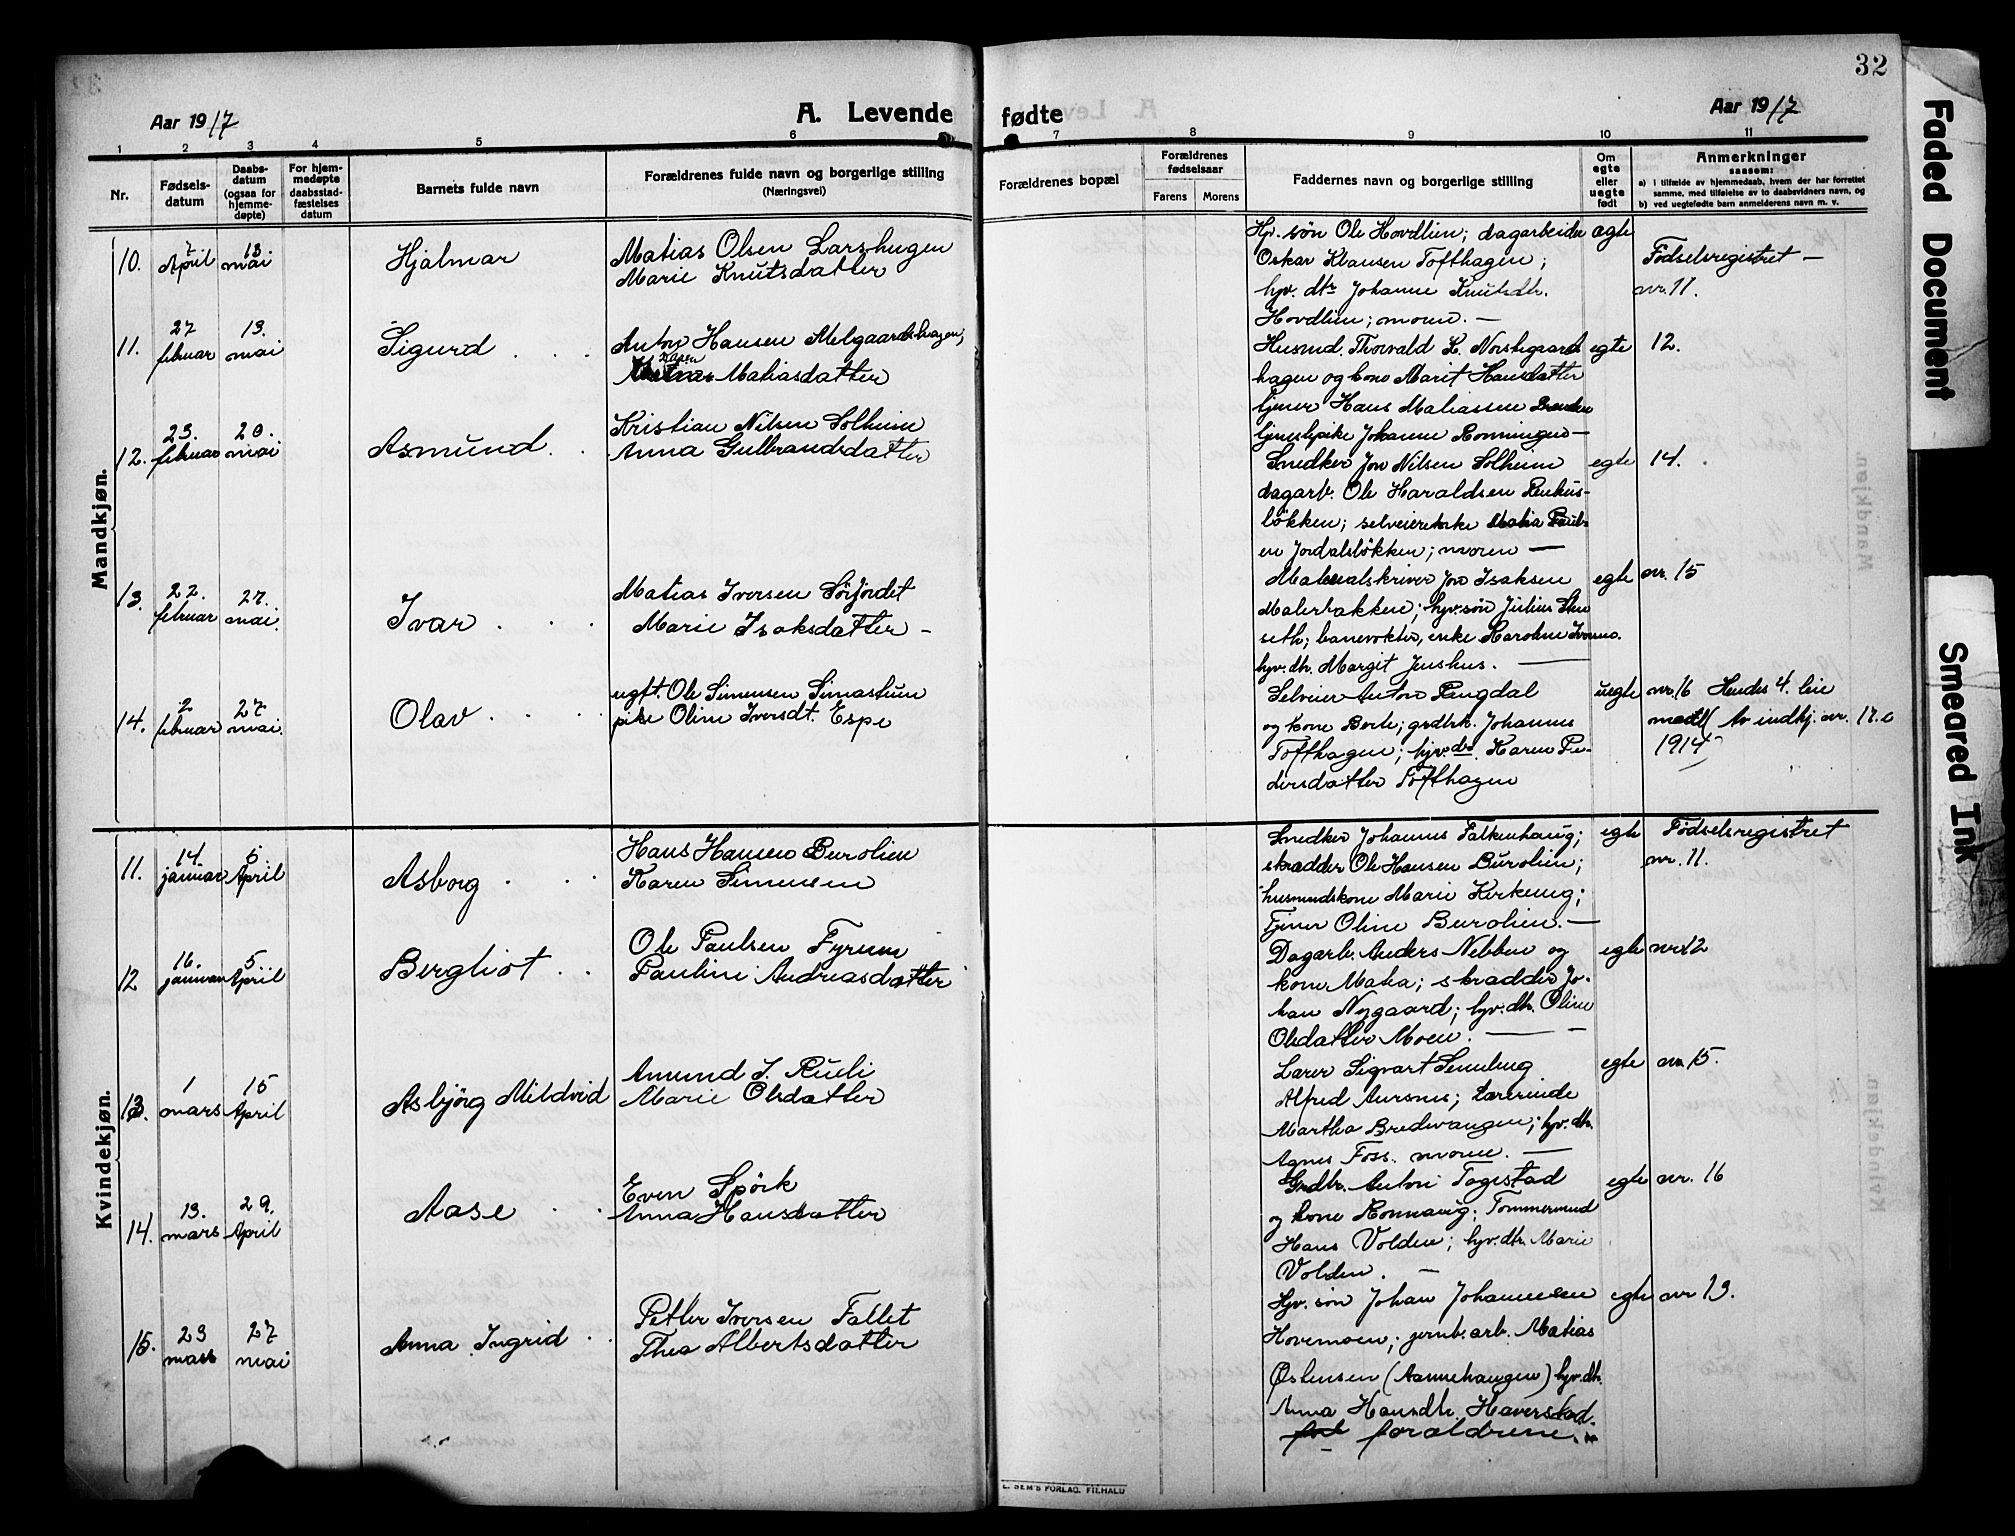 32
Aar 1917
A. Levende fødte
Aar 1917
1 2 3 4 5 6 7 8 9 10 11
Nr.
Fødsels-
datum
Daabs-
datum
(ogsaa for
hjemme-
døpte)
For hjem-
medøpte
daabsstad-
fæstelses
datum
Barnets fulde navn
Forældrenes fulde navn og borgerlige stilling
(Næringsvei)
Forældrenes bopæl
Forældrenes
fødselsaar
Farens Morens
Faddernes navn og borgerlige stilling
Om
egte
eller
uegte
født
Anmerkninger
saasom:
a) i tilfælde av hjemmedaab, hvem der har forrettet
samme, med tilføielse av to daabsvidners navn, og
b) ved uegtefødte barn anmelderens navn m. v.
Mandkjøn.
10. 7 April 13. mai Hjalmar
Matias Olsen Larshugen
Marie Knutsdatter
Hjv. søn Ole Hovdlien; dagarbeider
Oskar Klausen Tofthagen;
hjv. dtr Johanne Knutsdtr.
Hovdlien; moren. —
egte
Fødselsregistret —
nr. 11.
11. 27 februar 13. mai Sigurd
Anton Hansen Melgaardshagen,
Matiasdatter
Husmd. Thorvald L. Norstegaards
hagen og kone Marit Hansdatter
tjener Hans Matiassen
tjenestepike Johanne Ronningen —
egte
12.
12. 23. februar 20. mai Asmund
Kristian Nilsen Solheim
Anna Gulbrandsdatter
Snedker Jon Nilsen Solheim
dagarb. Ole Haraldsen Renhus-
løkken; selveierenke Matia Paul-
sen Jordalsløkken; moren —
egte
14.
13. 22. februar 27. mai. Ivar
Matias Iversen Sørjordet
Marie Isaksdatter —
Materialskriver Jon Isaksen
Malerbakken; hjv. søn Julius Sten
seth; banevokter, enke Karoline
hjv. dtr. Margit Jenshus. —
egte
nr. 15
14. 2 februar 27 mai. Olav
ugft. Ole Simensen Simastuen
pike Oline Iversdt. Espe
Selveier Anton Ringdal
og kone Berte; grdbr. Johannes
Tofthagen; hjv. dtr. Karen Pe-
dersdatter Tofthagen
uegte
nr. 16 Hendes 4. leie
med (Av indkj. nr. 17.
1914
Kvindekjøn.
11. 14. januar 5. April Asborg
Hans Hansen Burolien
Karen Simensen
Snedker Johannes Falkenhaug;
skrædder Ole Hansen Burolien;
husmandskone Marie Kirkeng;
Tjener Oline Burolien. —
egte
Fødselsregistret
nr. 11.
12 16. januar 5 April Bergliot
Ole Paulsen Fyruen
Pauline Andreasdatter
Dagarb. Anders Nebben og
kone Matia; skrædder Jo-
han Nygaard; hjv. dtr. Oline
Olsdatter Moen. —
egte
nr. 12
13. 1 mars 15 April Asbjörg Mildvid
Amund J. Rusli
Marie Olsdatter
Lærer Sigvart Semeleng
Alfred Aursnes; Lærerinde
Martha Bredevangen; hjv. dtr.
Agnes Foss. moren. —
egte
nr. 15.
14. 13. mars 29. April Aase
Even Spørk
Anna Hansdatter
Grdbr. Anton Togstad
og kone Ronnaug; Tømmermand
Hans Volden; hjv. dtr. Marie
Volden. —
egte
nr. 16
15. 23 mars 27 mai Anna Ingrid
Petter Iversen Fallet
Thea Albertsdatter
Hjv. søn Johan Johannessen
Hovemoen; jernb. arb. Matias
Østensen (Aannehaugen) hjv. dtr.
Anna Hansdtr. Haverstad.
forældrene.
egte
nr 13.
L. SEM'S FORLAG. F.HALD
Faded Document
Smeared Ink